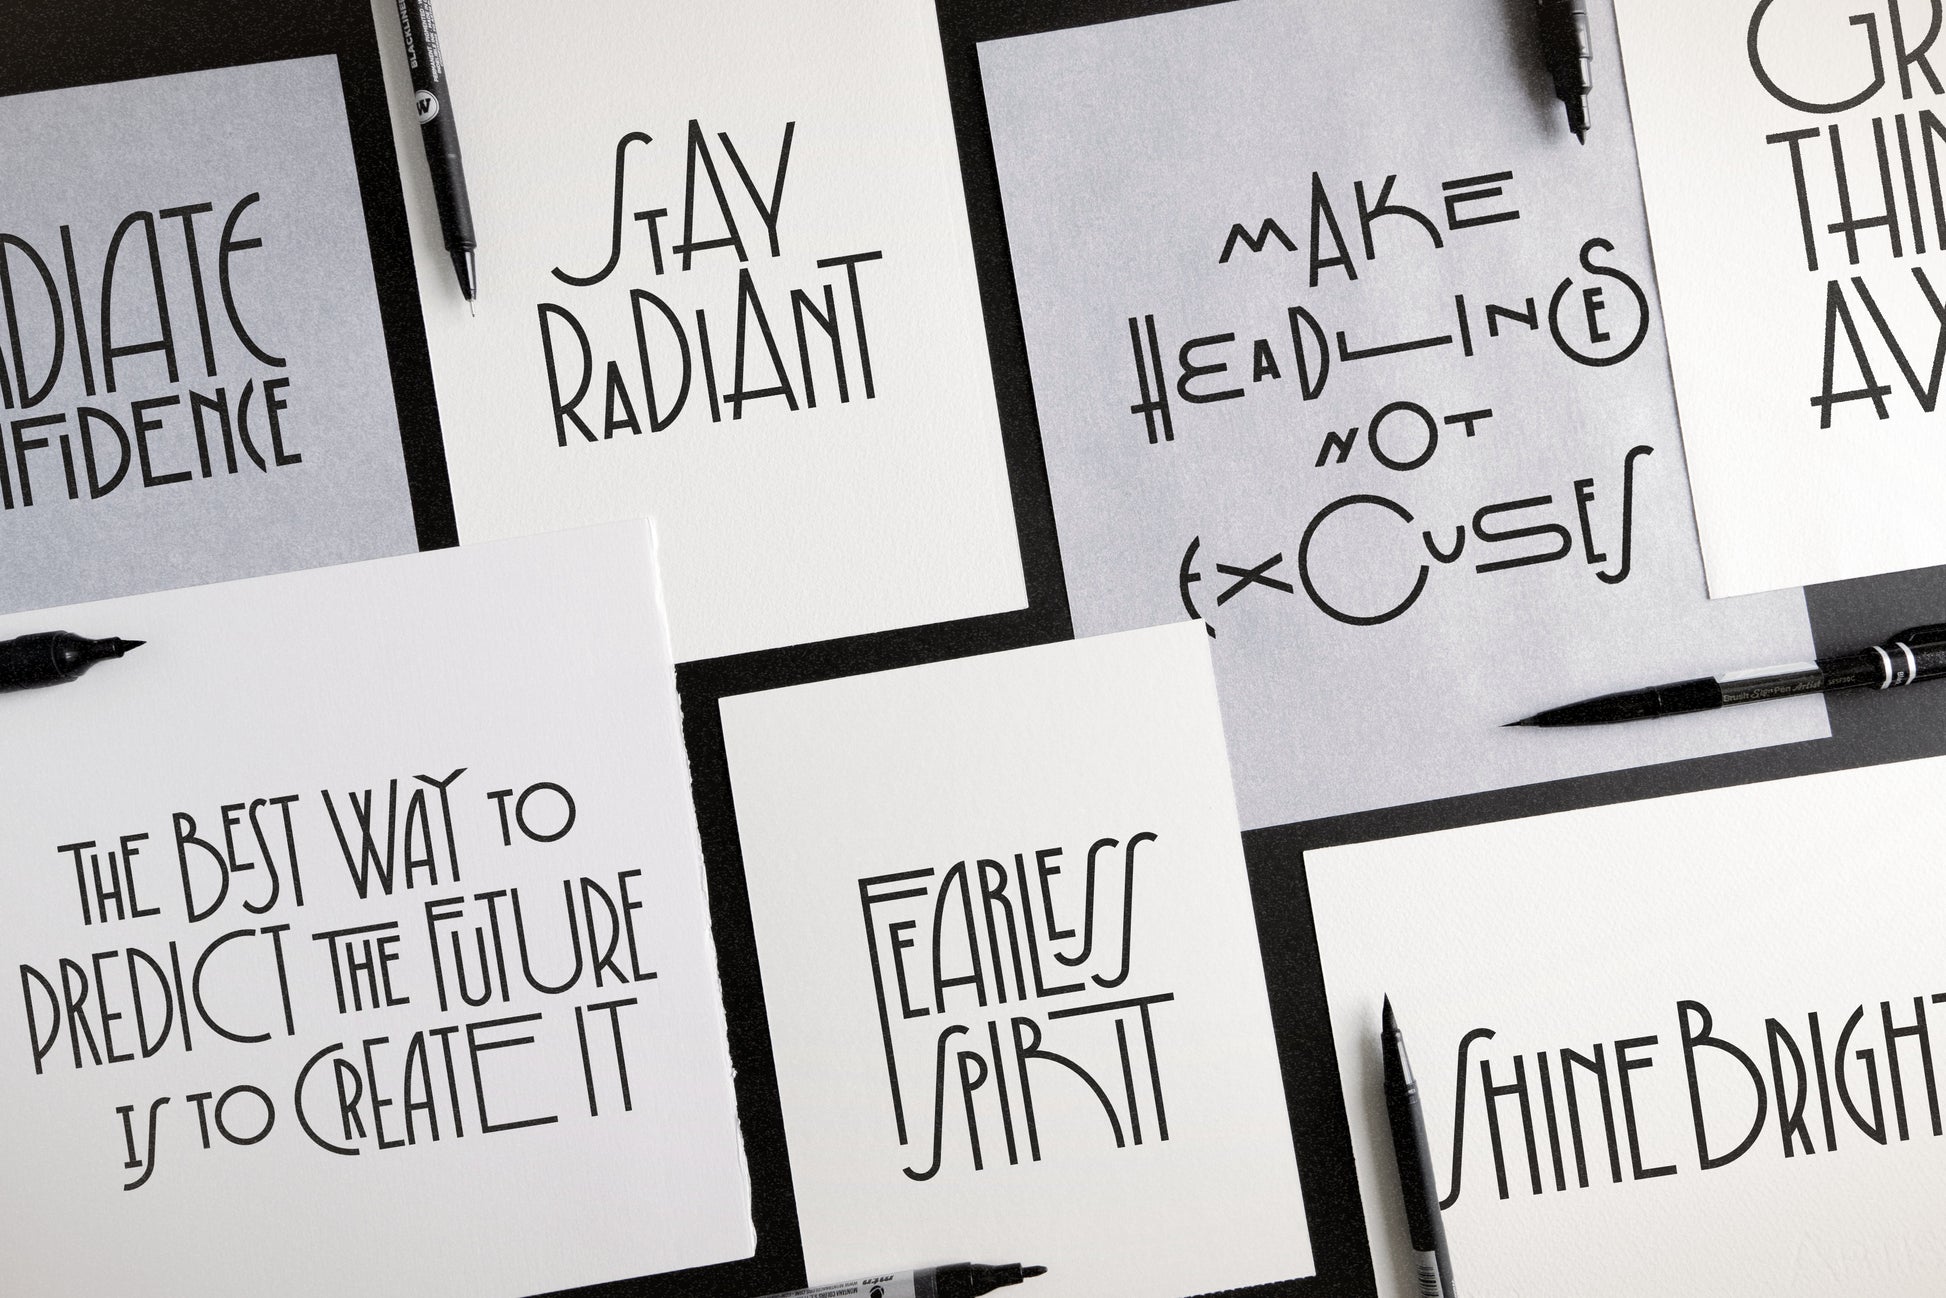 DIATE
NFIDENCE
STAY
RADIANT
MAKE
HEADLINES
NOT
EXCUSES
GR
THIN
AV
THE BEST WAY TO
PREDICT THE FUTURE
IS TO CREATE IT
FEARLESS
SPIRIT
SHINE BRIGHT
BLACKLINER
W
Brush Sign Pen Artist
mtn
MONTANA COLORS S.L.